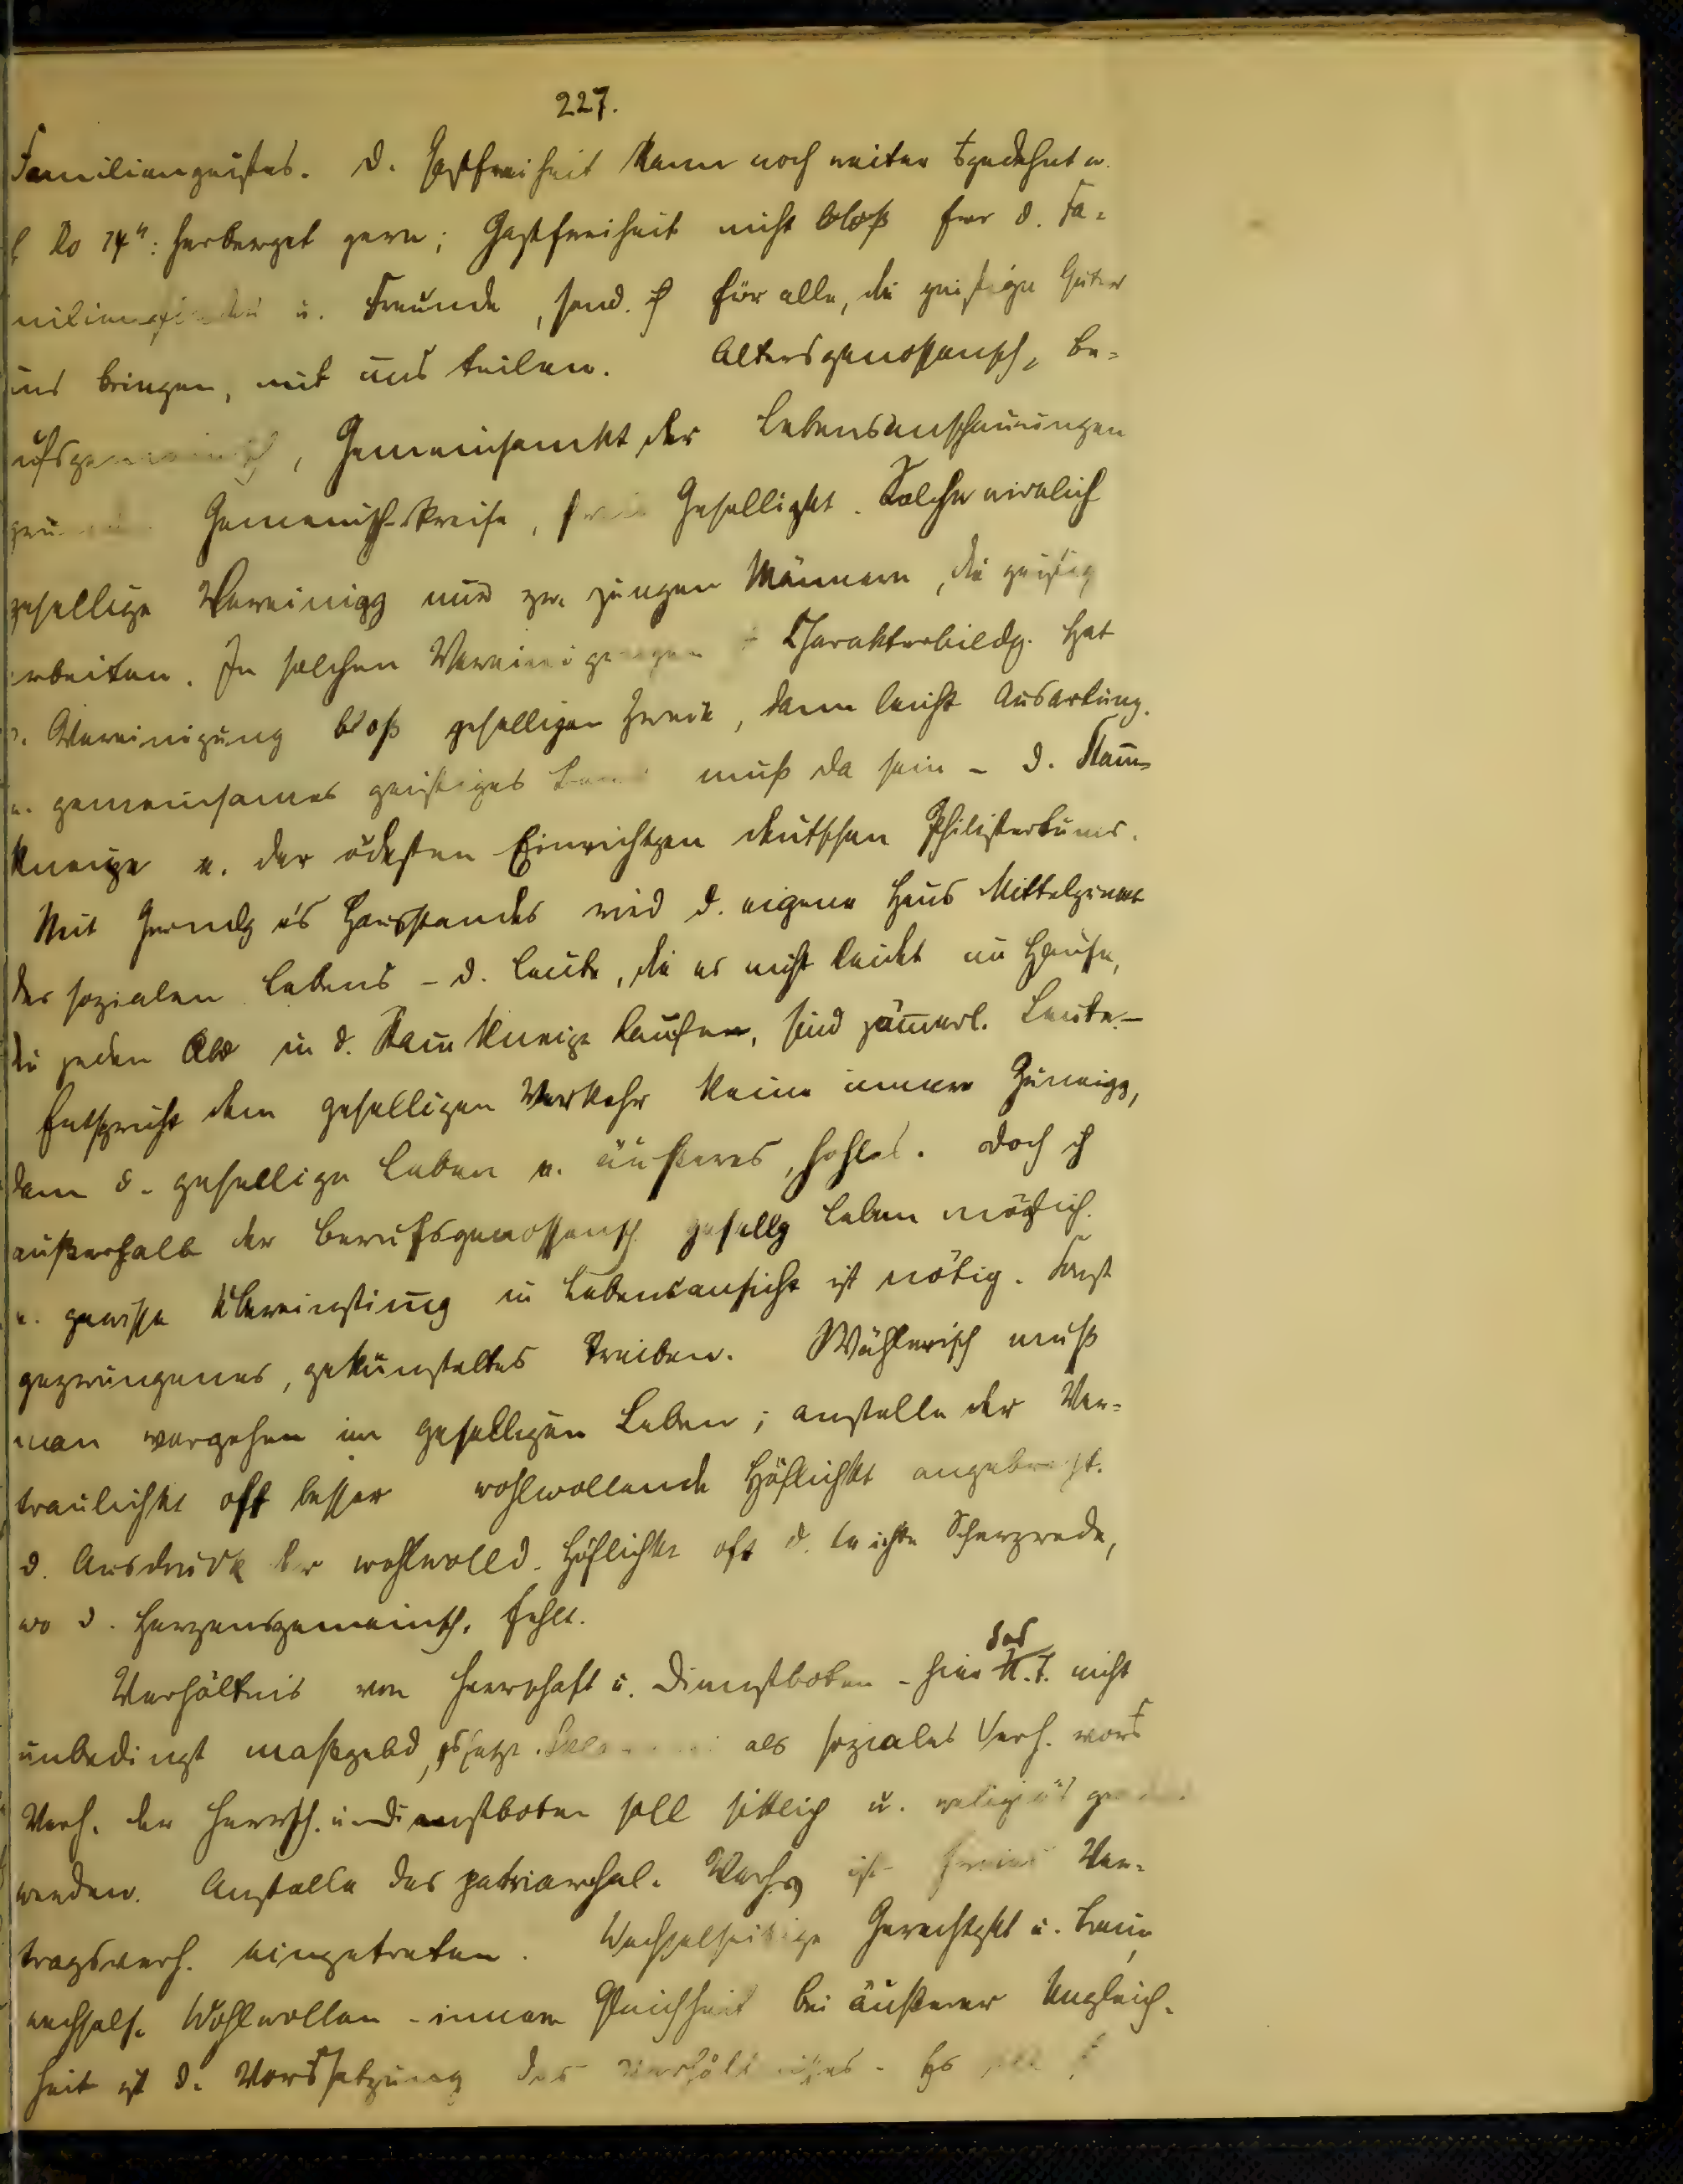 227.
Familiengeistes. D. Gastfreiheit kann noch weiter gedehnt w.
Ro 14: herberget gern; Gastfreiheit nicht bloß für d. Fa-
u. Freunde, sond. für alle, die geistige Güter
uns bringen, mit uns teilen. Altersgenossensch, Be-
, Gemeinsamkt der Lebensanschauungen
Gemeinsch-kreise, Geselligkt. Solche wirklich
gesellige Vereinigg nur zw. jungen Männern, die geistig
arbeiten. In solchen Vereinigungen Charakterbildg. Hat
d. Vereinigung bloß geselligen Zweck, dann leicht Ausartung.
e. gemeinsames geistiges Band muß da sein - d. Stam̅-
kneipe e. der ödesten Einrichtgen deutschen Philistertums.
Mit Gründg e's Hausstandes wird d. eigene Haus Mittelpunkt
des sozialen Lebens - d. Leute, die es nicht leidet im Hause,
die jeden Abd in d. Stam̅kneipe laufen, sind jäm̅erl. Leute. -
Entspricht dem geselligen Verkehr keine innere Zuneigg,
dann d. gesellige Leben e. äußeres, hohles. Doch
außerhalb der Berufsgenossensch. gesellg Leben möglich.
e. gewisse Übereinstim̅g in Lebensansicht ist nötig. Sonst
gezwungenes, gekünsteltes Treiben. Wählerisch muß
man vorgehen im geselligen Leben; anstelle der Ver-
traulichkt oft besser wohlwollende Höflichkt angebracht.
D. Ausdruck der wohlwolld. Höflichkt oft d. leichte Scherzrede,
wo d. Herzensgemeinsch. fehlt.
Verhältnis von Herrschaft u. Dienstboten - hier das N.T. nicht
unbedingt maßgebd, als soziales Verh. vor
Verh. der Herrsch. u. Dienstboten soll sittlich u. religiös
werden. Anstelle des patriarchal. Verh. ist freies Ver-
tragsverh. eingetreten. Wechselseitige Gerechtgkt u. Treue,
wechsels. Wohlwollen - innere Gleichheit bei äußerer Ungleich-
heit ist d. Vorssetzung des Verhältnisses. Es